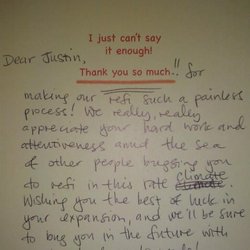 I just can't say
it enough!
Dear Justin,
Thank you so much!! for
making our refi such a painless
process! We really, really
appreciate your hard work and
attentiveness amid the sea
of other people bugging you
to refi in this rate climate
Wishing you the best of luck in
your expansion, and we'll be sure
to bug you in the future with